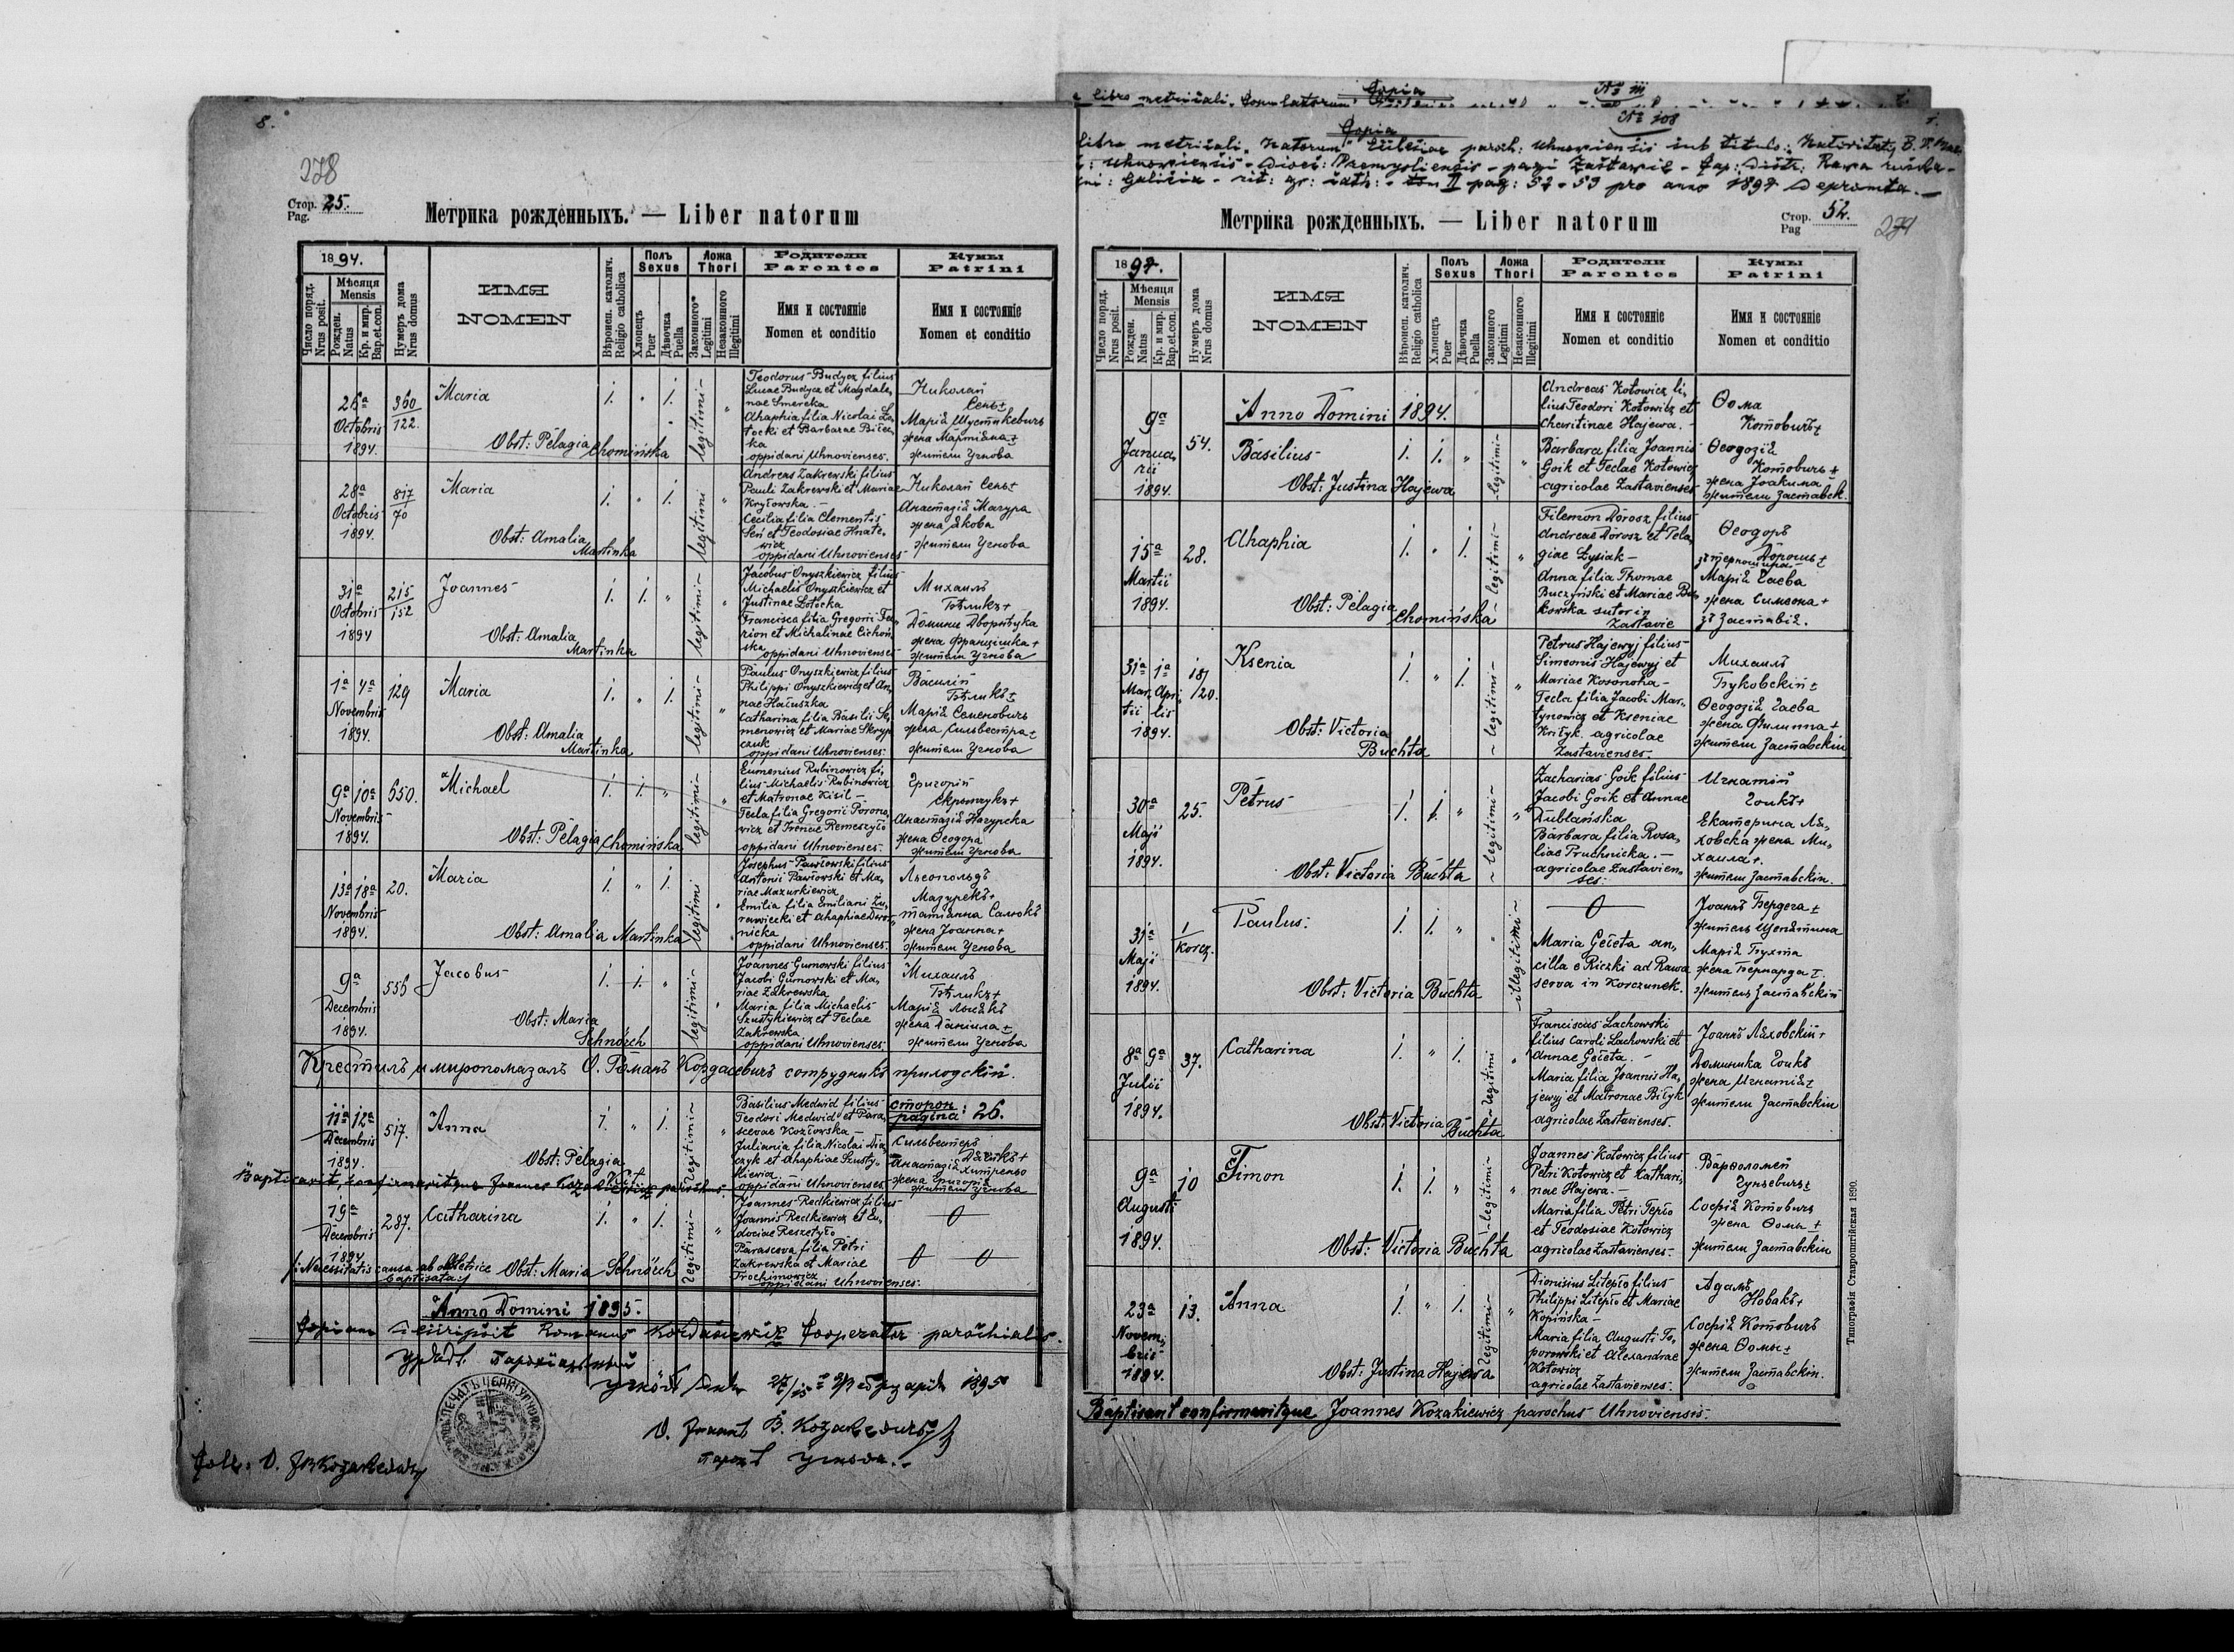 8.
278
Стор. 25.
Pag.
Метрика рожденныхъ. — Liber natorum
1894.
Число поряд.
Nrus posit.
Мѣсяця
Mensis
Рожден.
Natus
Кр. и мир.
Bap.et.con.
Нумеръ дома
Nrus domus
ИМЯ
NOMEN
Вѣроисп. католич.
Religio catholica
Полъ
Sexus
Хлопецъ
Puer
Дѣвочка
Puella
Ложа
Thori
Законного
Legitimi
Незаконного
Illegitimi
Родители
Parentes
Имя и состояніе
Nomen et conditio
Кумы
Patrini
Имя и состояніе
Nomen et conditio
26a
Octobris
1894.
360
122.
Maria
Obst: Pelagia Chomińska
1. " 1.
legitimi
Teodorus Budycz filius
Lucae Budycz et Magdale,
nae Smereka
Ahaphia filia Nicolai
et Barbarae
oppidani Uhnovienses.
Николай
Сень +
Марія
жена Мартіана +
жители Угнова
28a
Octobris
1894.
817
70
Maria
Obst: Amalia
Martinka
1. " 1.
legitimi
Andreas Zakrewski filius
Pauli Zakrewski et Mariae
Kryłowska.
Cecilia filia Clementis
Seń et Teodosiae Hnate,
wicz
oppidani Uhnovienses
Николай Сень +
Анастазія Мазура
жена Якова
жители Угнова
31a
Octobris
1894
215
152
Joannes
Obst: Amalia
Martinka
1. 1. "
legitimi
Jacobus Onyszkiewicz filius
Michaelis Onyszkiewicz et
Justinae Łotocka
Francisca filia Gregorii
et Michalinae Cichoń,
ska
oppidani Uhnovienses
Михаилъ
Бѣликъ +
жена Францішка +
жители Угнова
1a 4a
Novembris
1894.
129
Maria
Obst: Amalia
Martinka
1. " 1.
legitimi
Paulus Onyszkiewicz filius
Philippi Onyszkiewicz et An,
nae Hałuszka
Catharina filia Basilii Se,
menowicz et Mariae Skryp
czuk
oppidani Uhnovienses.
Василій
Бѣликъ +
Марія Семеновичъ
жена Сильвестра +
жители Угнова
9a 10a
Novembris
1894.
650.
Michael
Obst: Pelagia Chomińska
1. 1. "
legitimi
Eumenius Rubinowicz fi,
lius Michaelis Rubinowicz
et Matronae Kisil
Tecla filia Gregorii
et Irenae Remeszyło
oppidani Uhnovienses.
Григорій
Анастазія Нагурска
жена Ѳеодора
жители Угнова
13a 18a
Novembris
1894.
20.
Maria
Obst: Amalia Martinka
1. " 1.
legitimi
Josephus Pawłowski filius
Antonii Pawłowski et Ma,
riae Mazurkiewicz
Emilia filia Emiliani Żu,
rawiecki et Ahaphiae
nicka
oppidani Uhnovienses.
Льеопольдъ
Мазурекъ +
жена Іоанна +
жители Угнова
9a
Decembris
1894.
556
Jacobus
Obst: Maria
Schnörch
1. 1. "
legitimi
Joannes Gumowski filius
Jacobi Gumowski et Ma,
riae Zakrewska
Maria filia Michaelis
Szustykiewicz et Teclae
Zakrewska
oppidani Uhnovienses
Михаилъ
Бѣликъ +
Марія
жена Даніила +
жители Угнова
Крестилъ и миропомазалъ О. Романъ Кордасевичъ сотрудникъ приходскій.
11a 12a
Decembris
1894.
517.
Anna
Obst: Pelagia
1. " 1.
legitimi
Basilius Medwid filius
Teodori Medwid et Para,
scevae Kozłowska
Juliania filia Nicolai Dia,
czyk et Ahaphiae Szusty,
kiewicz
oppidani Uhnovienses
сторон
pagina : 26.
Сильвестеръ
Анастазія
жена Григорія
жители Угнова
Baptisavit, confirmavitque Joannes Kozakiewicz parochus.
19a
Decembris
1894
287.
Catharina
1. " 1.
legitimi
Joannes Redkiewicz filius
Joannis Redkiewicz et Eu,
dociae Reszetyło
Parasceva filia Petri
Zakrewska et Mariae
Trochimowicz
oppidani Uhnovienses.
/: Necessitatis causa ab obstetrice Obst: Maria Schnörch
baptisata :/
Anno Domini 1895.
Copiam descripsit Romanus Kordasiewicz Cooperator parochialis.
Урядъ парохіяльный
Угнôвъ 1895
О. Іоаннъ В. Козакевичъ
парохъ Угнова.
Copia
№ III
Copia
№ 108
libro metricali "Natorum" Ecclesiae paroch: Uhnoviensis sub titulo: Nativitatis B. V. Mar.
: Uhnoviensis - Dioec: Premysliensis - pagi Zastawie - Cap: Distr: Rawa ruska -
: Galicia - rit: gr: cath: - tom II pag: 52-53 pro anno 1897 Deprompta.
Метрика рожденныхъ. — Liber natorum
Стор. 52.
Pag
1897.
Число поряд.
Nrus posit.
Мѣсяця
Mensis
Рожден.
Natus
Кр. и мир.
Bap.et.con.
Нумеръ дома
Nrus domus
ИМЯ
NOMEN
Вѣроисп. католич.
Religio catholica
Полъ
Sexus
Хлопецъ
Puer
Дѣвочка
Puella
Ложа
Thori
Законного
Legitimi
Незаконного
Illegitimi
Родители
Parentes
Имя и состояніе
Nomen et conditio
Кумы
Patrini
Имя и состояніе
Nomen et conditio
Anno Domini 1894.
9a
Janua,
rii
1894.
54.
Basilius
Obst: Justina Hajewa
1. 1. "
legitimi
Andreas Kotowicz fi,
lius Teodori Kotowicz et
Charitinae Hajewa.
Barbara filia Joannis
Goik et Teclae Kotowicz
agricolae Zastavienses
Ѳома
Котовичъ +
Ѳеодозія
Котовичъ +
жена Іоакима
жители Заставск.
15a
Martii
1894.
28.
Ahaphia
Obst: Pelagia Chomińska
1. " 1.
legitimi
Filemon Dorosz filius
Andreae Dorosz et Pela,
giae Łysiak
Anna filia Thomae
Buczyński et Mariae
kowska sutor in
Zastavie
Ѳеодоръ
Дорошъ +
Марія Гаева
жена Симеона +
зъ Заставія.
31a 1a
Mar, Apri,
tii lis
1894.
187
120.
Ksenia
Obst: Victoria
Buchta
1. " 1.
legitimi
Petrus Hajewyj filius
Simeonis Hajewyj et
Mariae Kosonoha
Tecla filia Jacobi Mar,
tynowicz et Kseniae
Krityk. agricolae
Zastavienses.
Михаилъ
Буковскій +
Ѳеодозія Гаева
жена Филиппа +
жители Заставскіи
30a
Maji
1894.
25.
Petrus
Obst: Victoria Buchta
1. 1. "
legitimi
Zacharias Goik filius
Jacobi Goik et Annae
Dublańska
Barbara filia Rosa,
liae Pruchnicka.
agricolae Zastavien,
ses.
Игнатій
Гоикъ +
Екатерина Ля,
ховска жена Ми,
хаила +.
жители Заставскіи.
31a
Maji
1894.
1
Korcz.
Paulus.
Obst: Victoria Buchta
1. 1. "
illegitimi
Maria Gęceta an,
cilla e Riczki ad Rawa
serva in Korczunek.
Іоаннъ Бердега +
Марія Бухта
жена Бернарда +.
жители Заставскіи
8a 9a
Julii
1894.
37.
Catharina
Obst: Victoria Buchta
1. " 1.
legitimi
Franciscus Lachowski
filius Caroli Lachowski et
Annae Gęceta.
Maria filia Joannis Ha,
jewyj et Matronae Biłyk
agricolae Zastavienses.
Іоаннъ Ляховскій +
Доминика Гоикъ
жена Игнатія +
жители Заставскіи
9a
Augusti
1894.
10
Timon
Obst: Victoria Buchta
1. 1. "
legitimi
Joannes Kotowicz filius
Petri Kotowicz et Kathari,
nae Hajewa.
Maria filia Petri Tepło
et Teodosiae Kotowicz
agricolae Zastavienses.
Варѳоломей
Софія Котовичъ
жена Ѳомы +
жители Заставскіи
23a
Novem,
bris
1894.
13.
Anna
Obst: Justina Hajewa
1. " 1.
legitimi
Dionisius Litepło filius
Philippi Litepło et Mariae
Kopińska
Maria filia Augusti To,
porowski et Alexandrae
Kotowicz
agricolae Zastavienses.
Адамъ
Новакъ +
Софія Котовичъ
жена Ѳомы +
жители Заставскіи.
Baptisavit confirmavitque Joannes Kozakiewicz parochus Uhnoviensis.
Типографія Ставропигійская 1890.